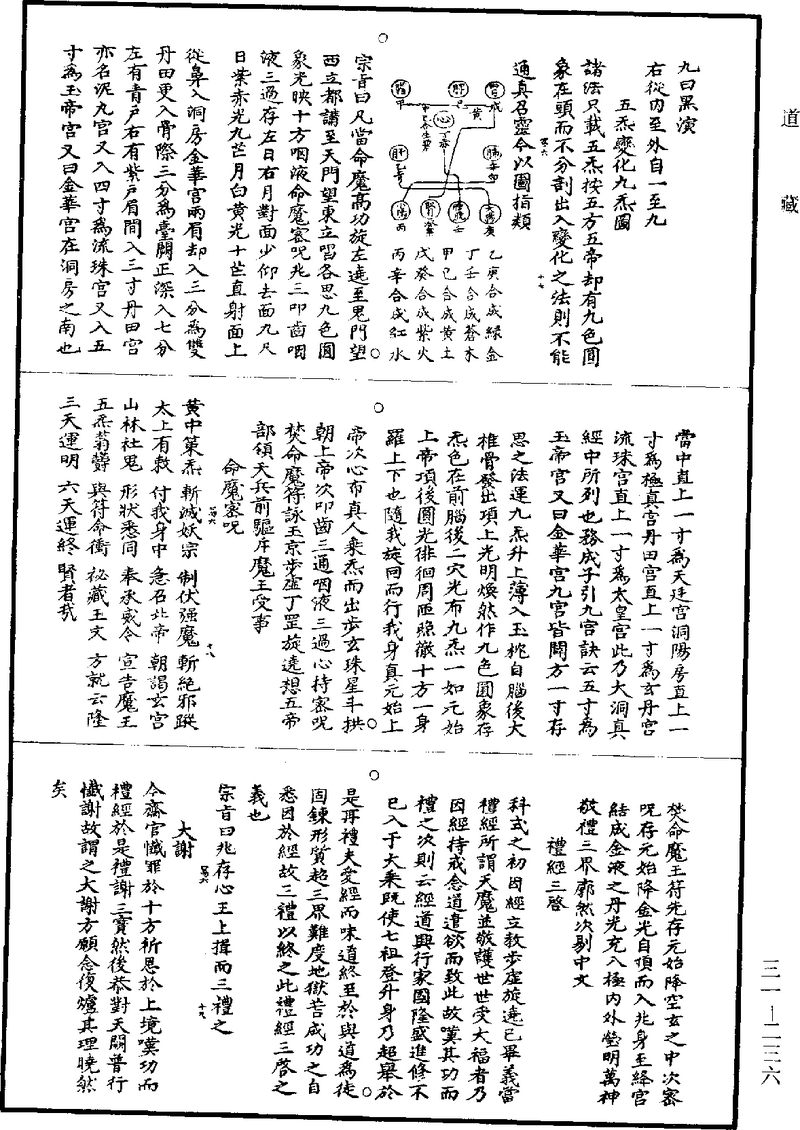 道藏
九曰黑演
右從內至外自一至九
五炁變化九炁圖
諸法只載五炁按五方五帝却有九色圓
象在頭而不分割出入變化之法則不能
通真召靈今以圖指類
乙庚合成綠金
丁壬合成蒼木
甲己合成黃土
戊癸合成紫火
丙辛合成紅水
宗旨曰凡當命魔高功旋左遶至鬼門望
西立都講至天門望東立唱各思九色圓
象光映十方咽液命魔密呪兆三叩齒咽
液三過存左日右月對面少仰去面九尺
日紫赤光九芒月白黃光十芒直射面上
從鼻入洞房金華宮兩眉却入三分為雙
丹田更入骨際三分為臺闕正深入七分
左有青戶右有紫戶眉間入三寸丹田宮
亦名泥丸宮又入四寸為流珠宮又入五
寸為玉帝宮又曰金華宮在洞房之南也
當中直上一寸為天廷宮洞陽房直上一
寸為極真宮丹田宮直上一寸為玄丹宮
流珠宮直上一寸為太皇宮此乃大洞真
經中所列也務成子引九宮訣云五寸為
玉帝宮又曰金華宮九宮皆開方一寸存
思之法運九炁升上薄入玉枕自腦後大
椎骨發出項上光明煥然作九色圓象存
炁色在前腦後二穴光布九炁一如元始
上帝項後圓光徘徊周匝照徹十方一身
羅上下也隨我旋回而行我身真元始上
帝次心布真人乘炁而出步玄珠星斗拱
朝上帝次叩齒三通咽液三過心持密呪
焚命魔符詠玉京步虛丁罡旋遶想五帝
部領天兵前驅斥魔王受事
命魔密呪
黃中策炁 斬滅妖宗 制伏强魔 斬絕邪蹤
太上有敕 付我身中 急召北帝 朝謁玄宮
山林社鬼 形狀悉同 奉承威令 宣告魔王
五炁蓊鬱 與符命衝 祕藏玉文 方就云隆
三天運明 六天運終 賢者我
焚命魔王符先存元始降空玄之中次密
呪存元始降金光自頂而入兆身至絳宮
結成金液之丹光充八極內外瑩明萬神
敬禮三界廓然次剔中文
禮經三啓
科式之初因經立教步虛旋遶已畢義當
禮經所謂天魔並敬護世世受大福者乃
因經持戒念道遣欲而致此故嘆其功而
禮之次則云經道興行家國隆盛進修不
已入于大乘旣使七祖登升身乃超舉於
是再禮夫愛經而味道終至於與道為徒
固鍊形質超三界難度地獄苦成功之自
悉因於經故三禮以終之此禮經三啓之
義也
宗旨曰兆存心王上揖而三禮之
大謝
今齋官懺罪於十方祈恩於上境嘆功而
禮經於是禮謝三寶然後恭對天闕普行
懺謝故謂之大謝方願念復爐其理曉然
矣
三一—二三六